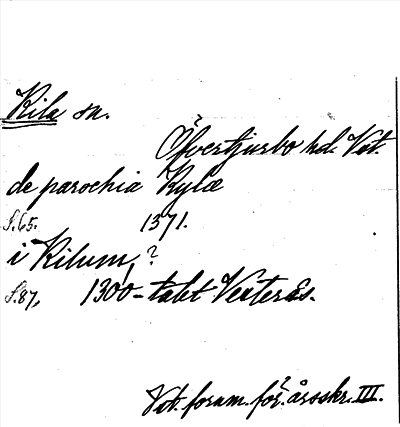 Kila sn.
Öfvertjurbo hd. Vst.
de parochia Kylæ
S. 65. 1371.
i Kilum, ?
S. 87, 1300-talet Vesterås.
Vst. fornm. för. årsskr. III.